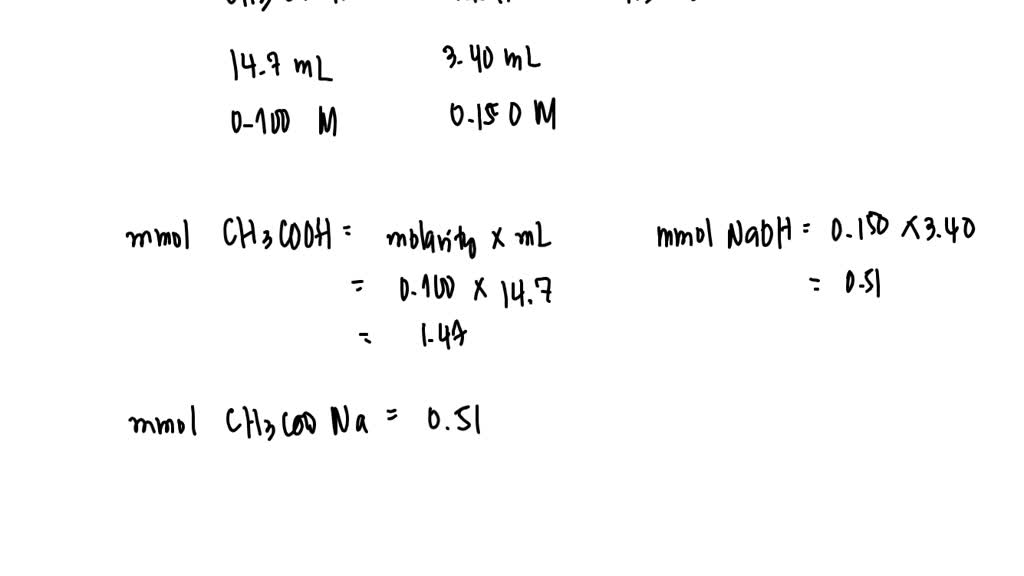 14.7 mL 3.40 mL
0.100 M 0.150 M
mmol CH3COOH = molarity x mL mmol NaOH = 0.150 x 3.40
= 0.100 x 14.7 = 0.51
= 1.47
mmol CH3COONa = 0.51